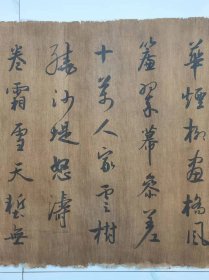 華烟柳畫橋風
簾翠幕參差
十萬人家雲樹
繞沙堤怒濤
卷霜雪天塹無